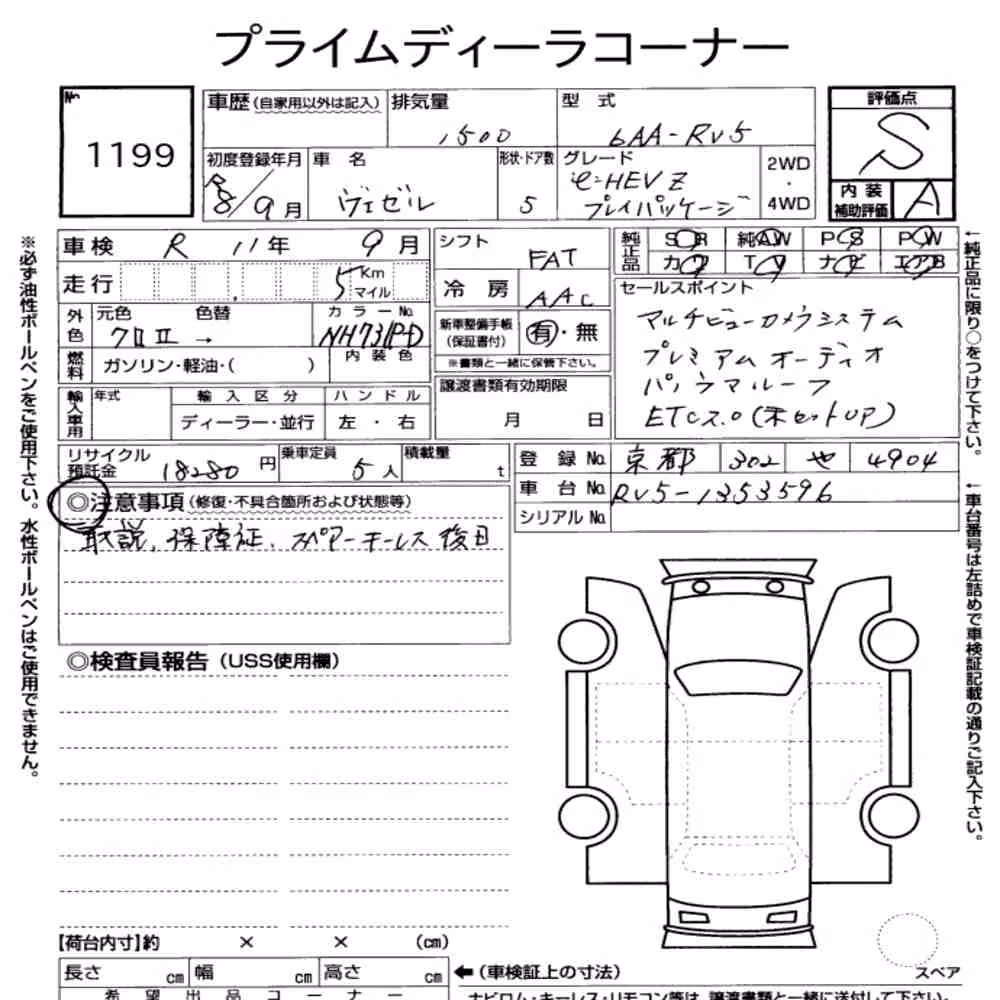 プライムディーラコーナー
No.
1199
車歴 (自家用以外は記入)
排気量
1500
型式
6AA-RV5
評価点
S
内装補助評価
A
初度登録年月
R8/9月
車名
ヴェゼル
形状・ドア数
5
グレード
e:HEV Z
プレイパッケージ
2WD
・
4WD
車検 R 11年 9月
シフト
FAT
純正品
SR 純AW PS PW
カワ TV ナビ エアB
走行 5 Km
マイル
冷房 AAC
セールスポイント
マルチビューカメラシステム
プレミアムオーディオ
パノラマルーフ
ETC2.0(未セットUP)
外色
元色 色替 カラーNo.
クロⅡ → NH731P-D
新車整備手帳
(保証書付)
有・無
※書類と一緒に保管下さい。
燃料 ガソリン・軽油・( )
内装色
譲渡書類有効期限
月 日
輸入車用
年式 輸入区分 ハンドル
ディーラー・並行 左・右
リサイクル預託金 18280円
乗車定員 5人
積載量 t
登録No. 京都 302 や 4904
車台No. RV5-1353596
シリアルNo.
◎注意事項 (修復・不具合箇所および状態等)
取説、保障証、スペアーキーレス後日
◎検査員報告 (USS使用欄)
【荷台内寸】約 × × (cm)
長さ cm 幅 cm 高さ cm
←(車検証上の寸法)
スペア
希望出品コーナー
ナビロム・キーレス・リモコン等は、譲渡書類と一緒に送付して下さい。
※必ず油性ボールペンをご使用下さい。水性ボールペンはご使用できません。
←純正品に限り○をつけて下さい。
←車台番号は左詰めで車検証記載の通りご記入下さい。